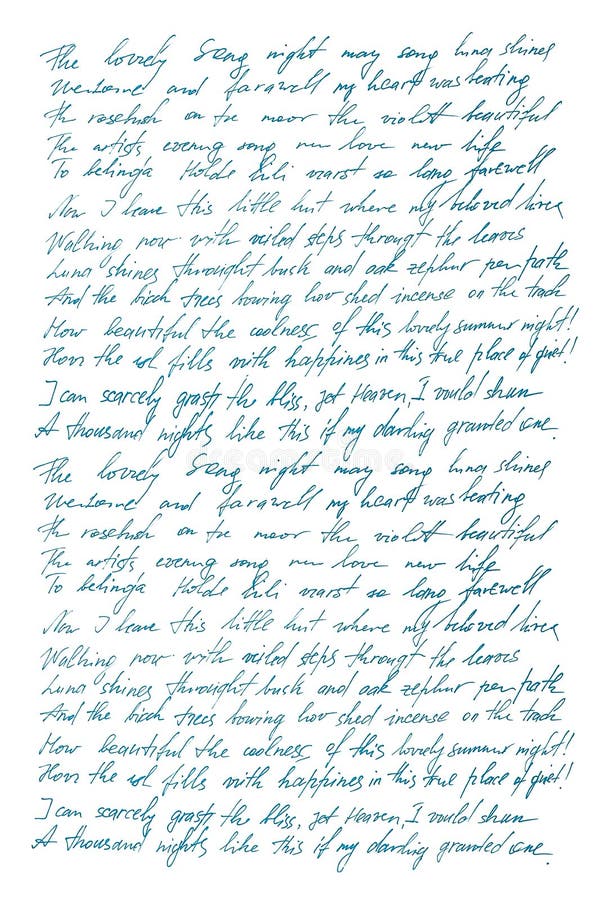 The lovely Song night may song luna shines
Welcome and farawell my heart was beating
th rosebush on the moor the violett beautiful
The artists evening song new love new life
To belinda Holde Lili warst so long farewell
Now I leave this little hut where my beloved lives
Walking now with veiled steps througt the leaves
Luna shines throught bush and oak zephur per path
And the birch trees bowing low shed incense on the track
How beautiful the coolness of this lovely summer night!
How the sol fills with happines in this true place of quiet!
I can scarcely grasp the bliss, jet Heaven, I would shun
A thousand nights like this if my darling granted one.
The lovely Song night may song luna shines
Welcome and farawell my heart was beating
th rosebush on the moor the violett beautiful
The artists evening song new love new life
To belinda Holde Lili warst so long farewell
Now I leave this little hut where my beloved lives
Walking now with veiled steps througt the leaves
Luna shines throught bush and oak zephur per path
And the birch trees bowing low shed incense on the track
How beautiful the coolness of this lovely summer night!
How the sol fills with happines in this true place of quiet!
I can scarcely grasp the bliss, jet Heaven, I would shun
A thousand nights like this if my darling granted one.